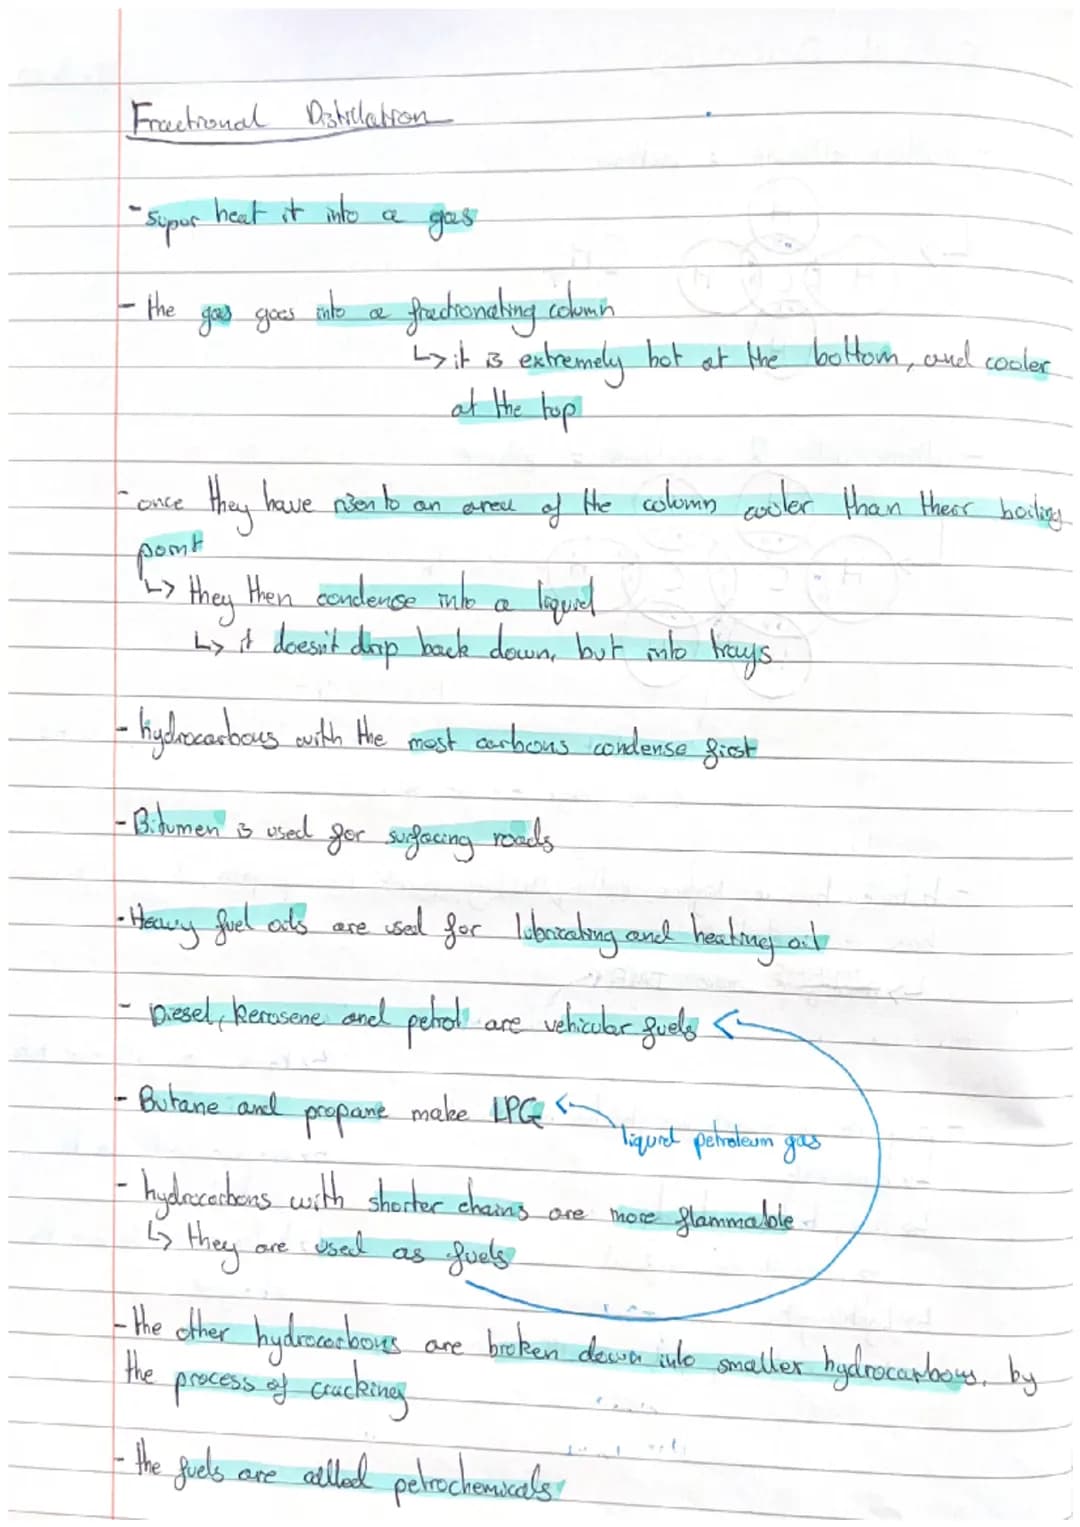 Fractional Distillation
- super heat it into a gas
- the gas goes into a fractionating column
↳ it is extremely hot at the bottom, and cooler
at the top
- once they have risen to an area of the column cooler than their boiling
point
↳ they then condense into a liquid
↳ it doesn't drip back down, but into trays
- hydrocarbons with the most carbons condense first
- Bitumen is used for surfacing roads
- Heavy fuel oils are used for lubricating and heating oil
- Diesel, kerosene and petrol are vehicular fuels
- Butane and propane make LPG
liquid petroleum gas
- hydrocarbons with shorter chains are more flammable
↳ they are used as fuels
- the other hydrocarbons are broken down into smaller hydrocarbons, by
the process of cracking
- the fuels are called petrochemicals